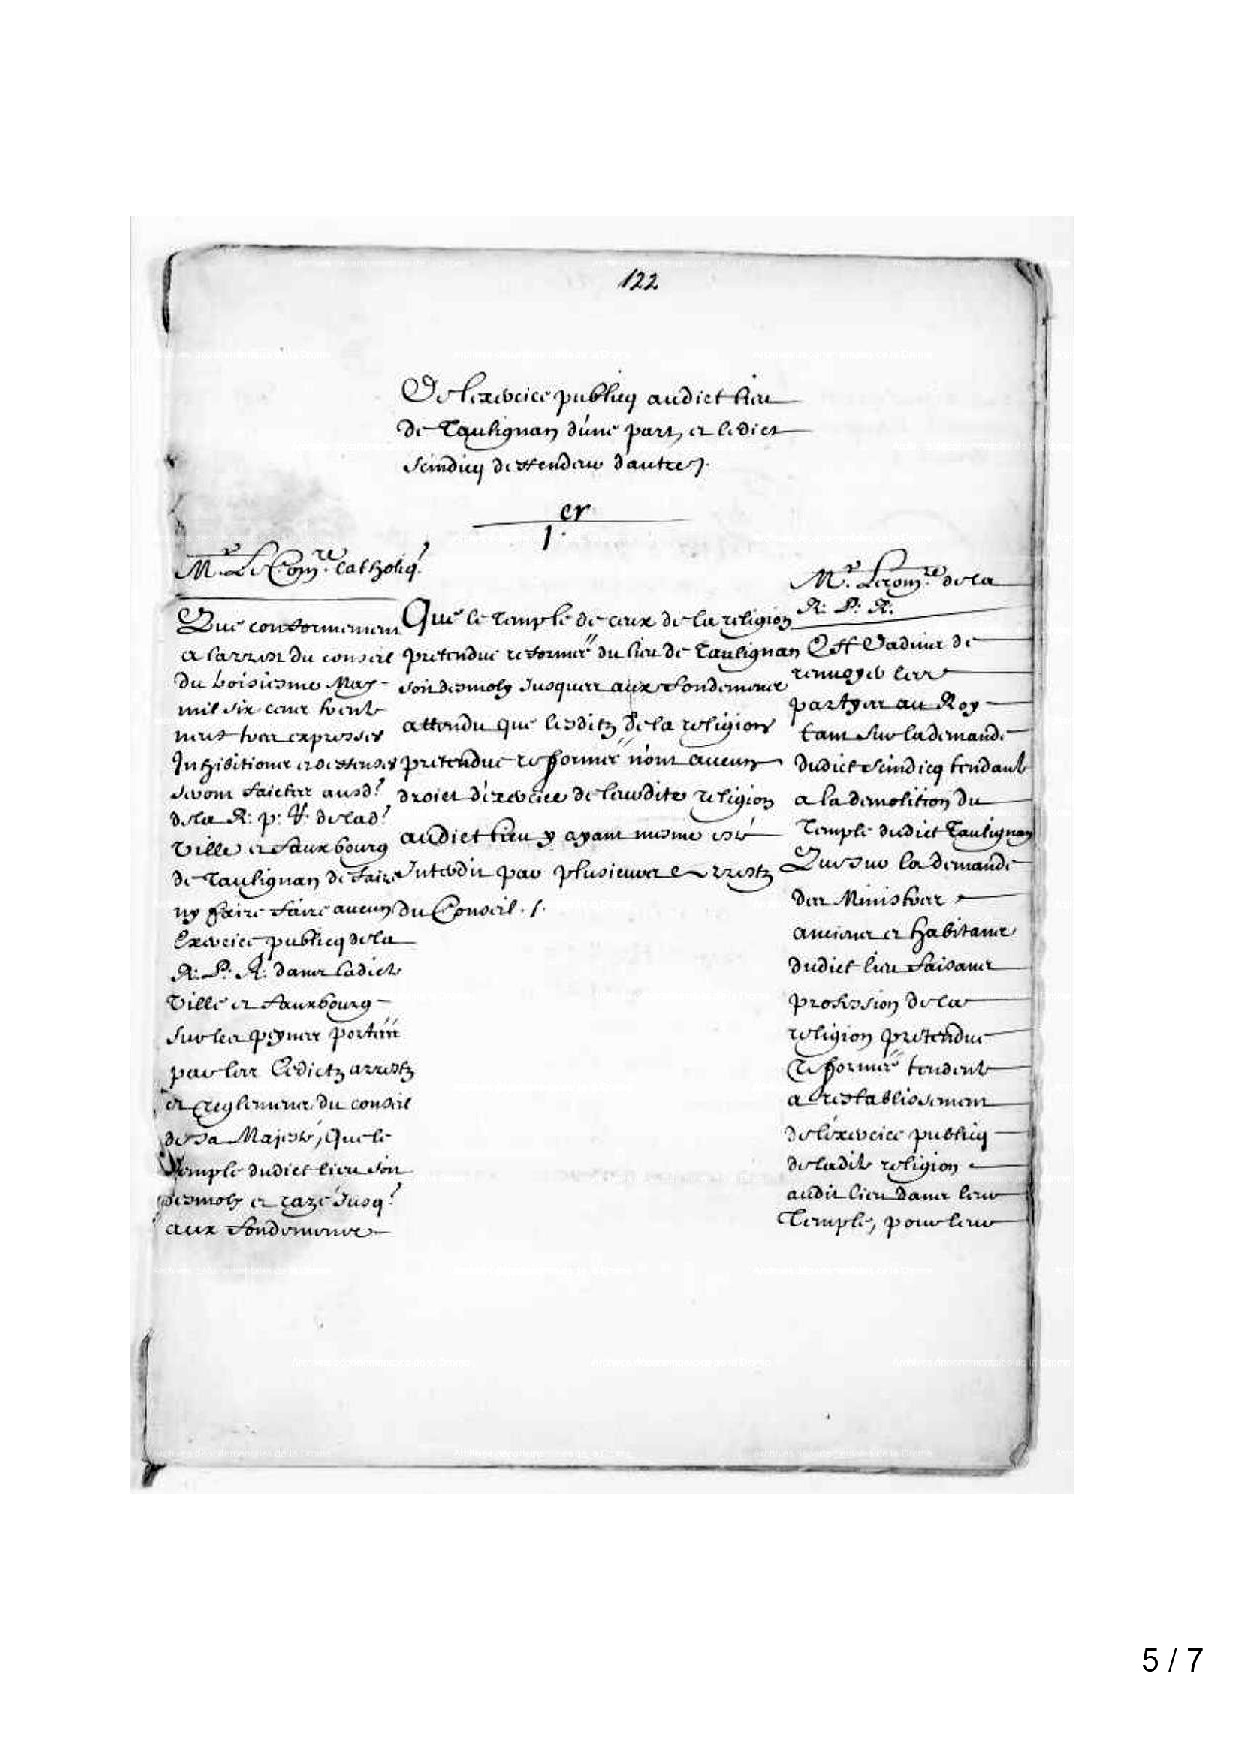 122
De lexercice publicq audict lieu
de Taulignan d'une part, et ledict
scindicq deffendeur d'autre.
er
1.
Mr. Le Comre. catholiq?
Que conformement
a larrest du conseil
du troisiesme May
mil six cens trente
neuf tres expresses
Inhibitions et deffenses
seront faictes ausd?
de la R. p. R. de lad?
ville et fauxbourg
de Taulignan de faire
ny faire faire aucun
Exercice publicq de la
R. P. R. dans ladicte
ville et fauxbourg
sur les peynes portées
par les Edictz arrestz
et reglemens du conseil
de sa Majesté, Que le
Temple dudict lieu soit
desmoly et razé jusq?
aux fondemens
Que le temple de ceux de la religion
pretendue reformée du lieu de Taulignan
soit desmoly Jusques aux fondemens
attendu que lesditz de la religion
pretendue reformée n'ont aucun
droict d'exercice de laudite religion
audict lieu y ayant mesme esté
Interdit par plusieurs Arrestz
du Conseil. /.
Mr. Le com.re de la
R. P. R.
Est d'advis de
renvoyer les
partyes au Roy
tant sur la demande
dudict scindicq tendant
a la demolition du
Temple dudict Taulignan
Que sur la demande
des Ministres
anciens et habitans
dudict lieu faisans
profession de la
religion pretendue
reformée tendente
a restablissement
de l'exercice publicq
de ladite religion
audit lieu dans leur
Temple, pour leur
5 / 7